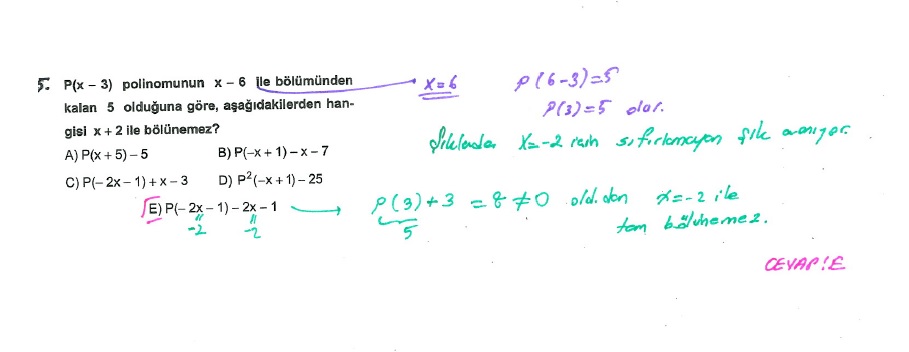 5. P(x – 3) polinomunun x – 6 ile bölümünden
kalan 5 olduğuna göre, aşağıdakilerden han-
gisi x + 2 ile bölünemez?
A) P(x + 5) – 5 B) P(–x + 1) – x – 7
C) P(– 2x – 1) + x – 3 D) P²(–x + 1) – 25
E) P(– 2x – 1) – 2x – 1
-2 -2
x=6 P(6-3)=5
P(3)=5 olur.
Şıklardan x=-2 için sıfırlamayan şık aranıyor.
P(3)+3 = 8 ≠ 0 old.dan x=-2 ile
5 tam bölünemez.
CEVAP: E